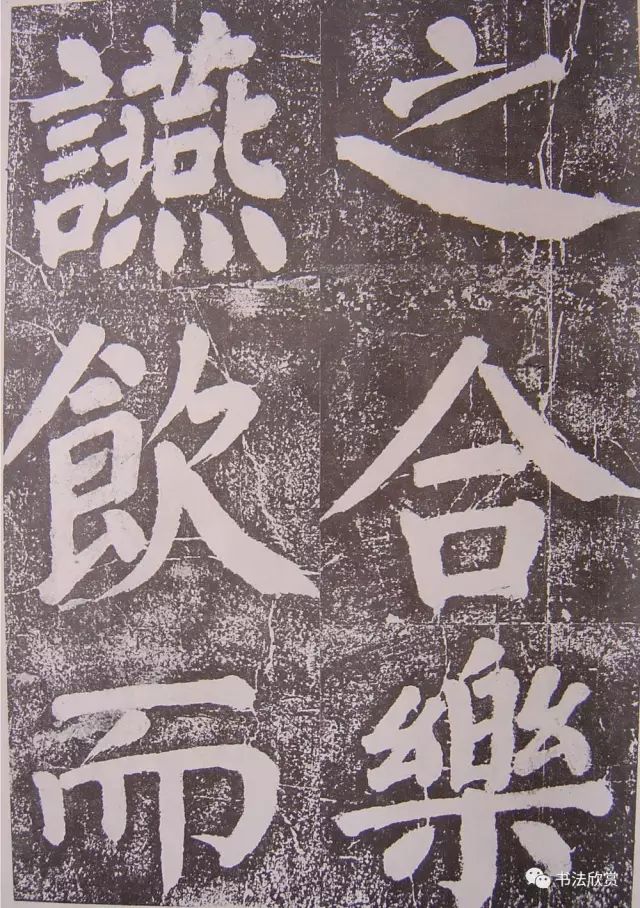 之合樂
讌飲而
书法欣赏